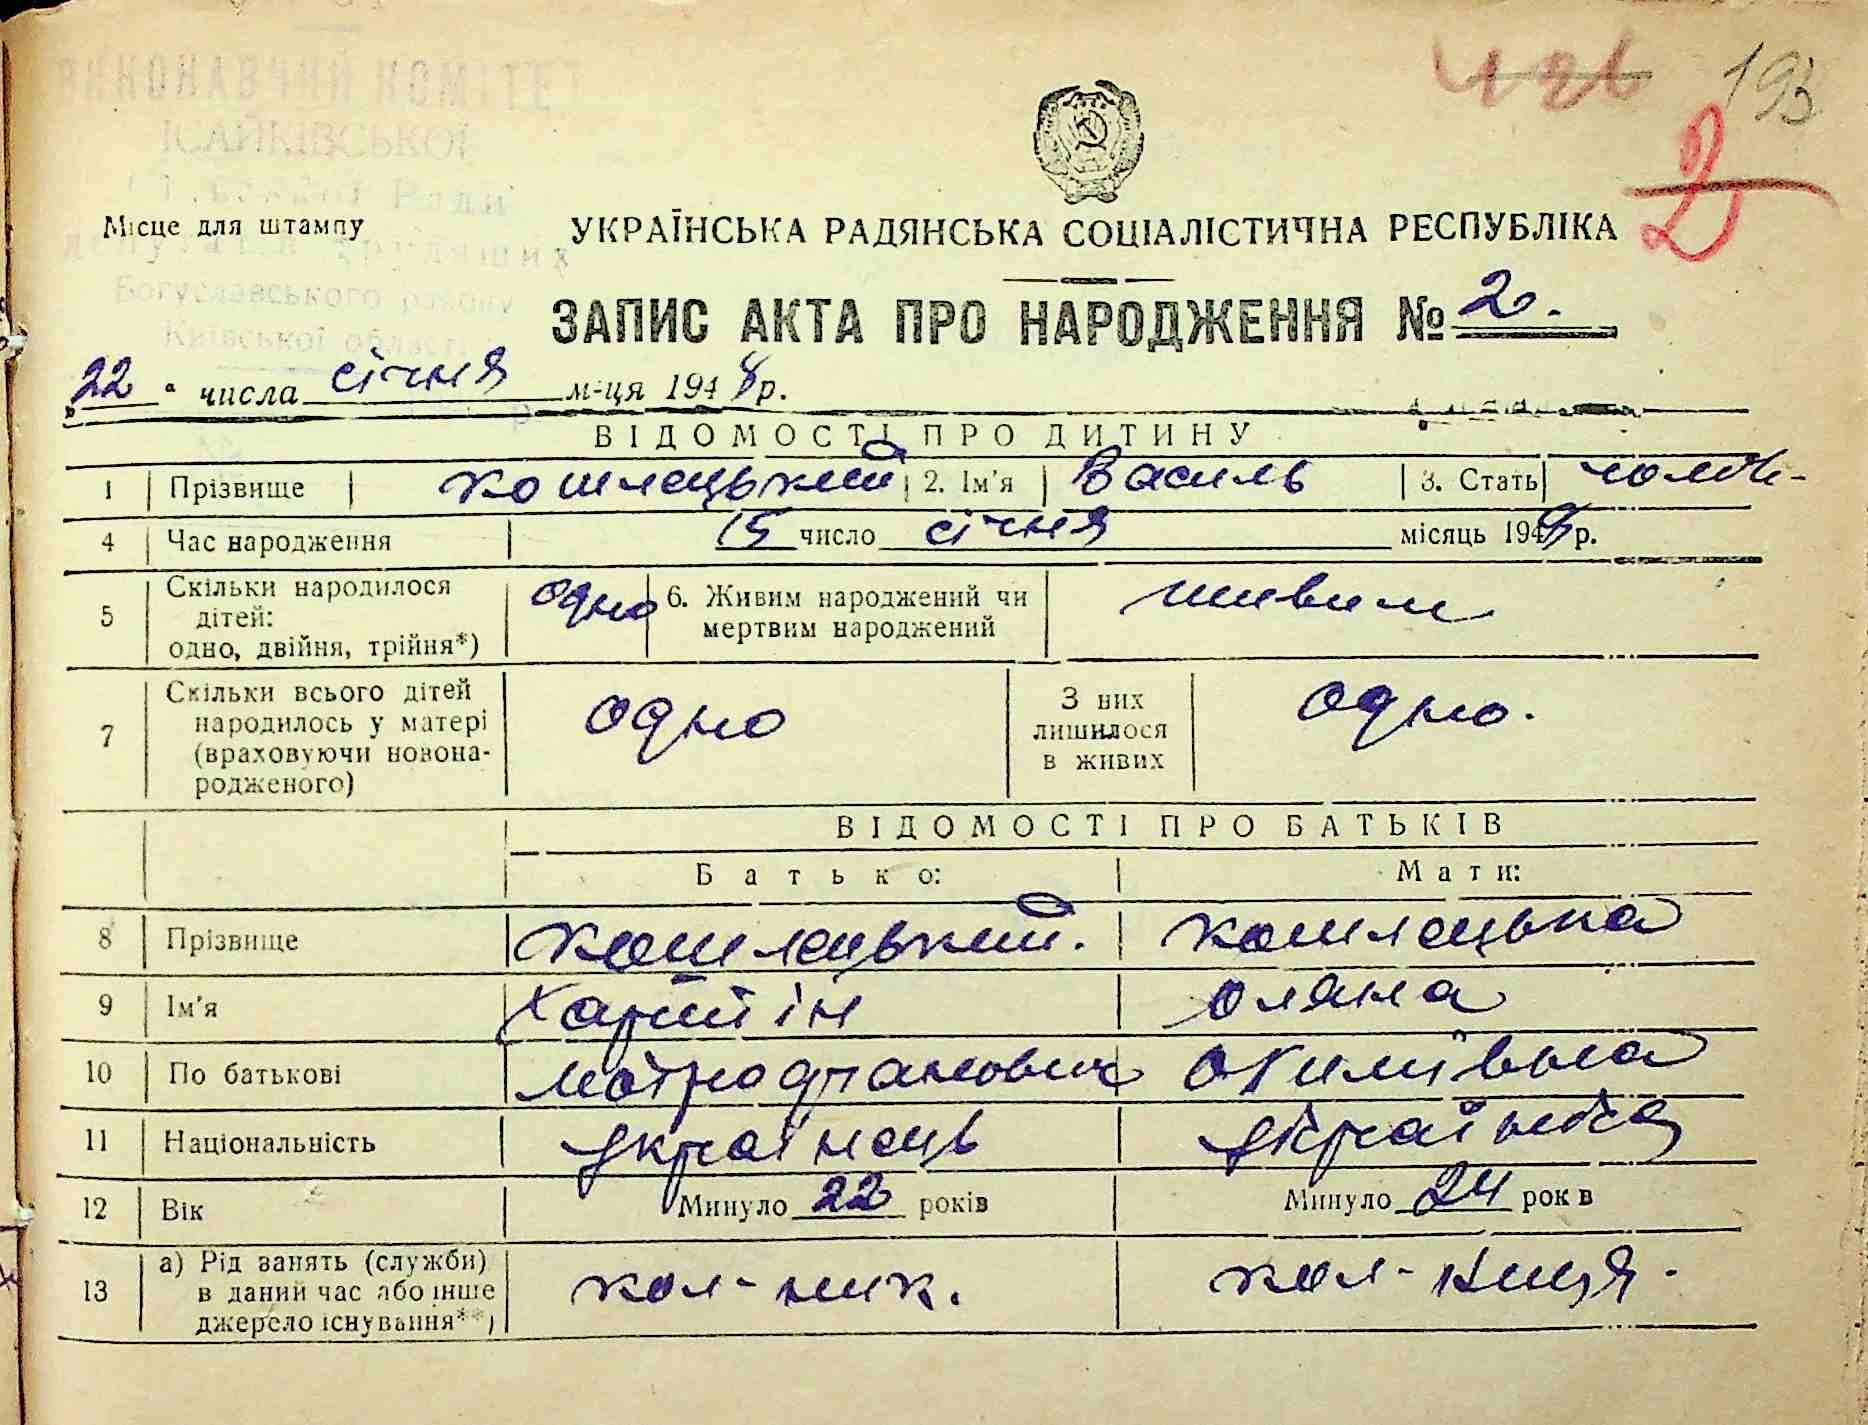 ВИКОНАВЧИЙ КОМІТЕТ
ІСАЙКІВСЬКОЇ
Ради
депутатів трудящих
Богуславського району
Київської області
193
2
Місце для штампу
УКРАЇНСЬКА РАДЯНСЬКА СОЦІАЛІСТИЧНА РЕСПУБЛІКА
ЗАПИС АКТА ПРО НАРОДЖЕННЯ № 2.
„22" числа січня м-ця 1948 р.
ВІДОМОСТІ ПРО ДИТИНУ
1 Прізвище Кошлецький 2. Ім'я Василь 3. Стать чолові-
4 Час народження 15 число січня місяць 1948 р.
5 Скільки народилося дітей: одно, двійня, трійня*) одно 6. Живим народжений чи мертвим народжений живим
7 Скільки всього дітей народилось у матері (враховуючи новона-родженого) одно З них лишилося в живих одно.
ВІДОМОСТІ ПРО БАТЬКІВ
Батько: Мати:
8 Прізвище Кошлецький. Кошлецька
9 Ім'я Харитін Оляна
10 По батькові Якимівна
11 Національність українець українка
12 Вік Минуло 22 років Минуло 24 рок в
13 а) Рід занять (служби) в даний час або інше джерело існування**) кол-ник. кол-ниця.